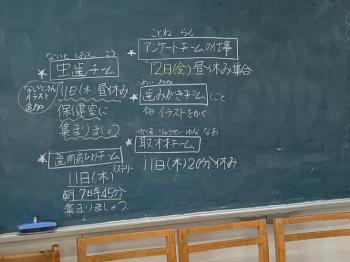 ないと しおん こう
★虫歯チーム
ないとさん
イラスト
追加
11日(木 昼休み
保健室に
集まりましょう
ことね らん
★アンケートチームの仕事
12日(金)昼休み集合
★歯みがきチーム しごと
今日 イラストをかく
★歯周病チーム
11日(木)
朝 7時45分
集まりましょう。
★取材チーム
11日(木)20分休み